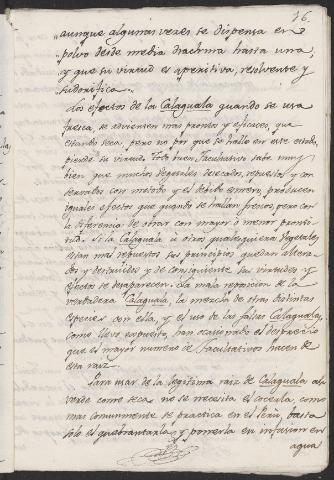 16.
aunque algunas veces se dispensa en
polvo desde media drachma hasta una,
y que su virtud es aperitiva, resolvente y
sudorifica.
Los efectos de la Calaguala quando se usa
fresca, se advierten mas prontos y eficaces, que
estando seca, pero no por que se halle en este estado,
pierde su virtud. Todo buen Facultativo sabe muy
bien que muchos vegetales desecados, repuestos y con
servados con metodo y el debido esmero, producen
iguales efectos que quando se hallan frescos, pero con
la diferencia de obrar con mayor ó menor pronti
tud. Si la Calaguala ú otros qualesquiera vegetales,
estan mal repuestos sus principios quedan altera
dos y destruidos y de consiguiente sus virtudes y
efectos se desaparecen. La mala reposicion de la
verdadera Calaguala, la mezcla de otras distintas
especies con ella, y el uso de las falsas Calagualas,
como llevo expuesto, han ocasionado el desprecio
que el mayor numero de Facultativos hacen de
esta raiz.
Para usar de la legitima raiz de Calaguala asi
verde como seca no se necesita el cocerla, como
mas comunmente se practica en el Perù, basta
solo el quebrantarla y ponerla en infusion en
agua